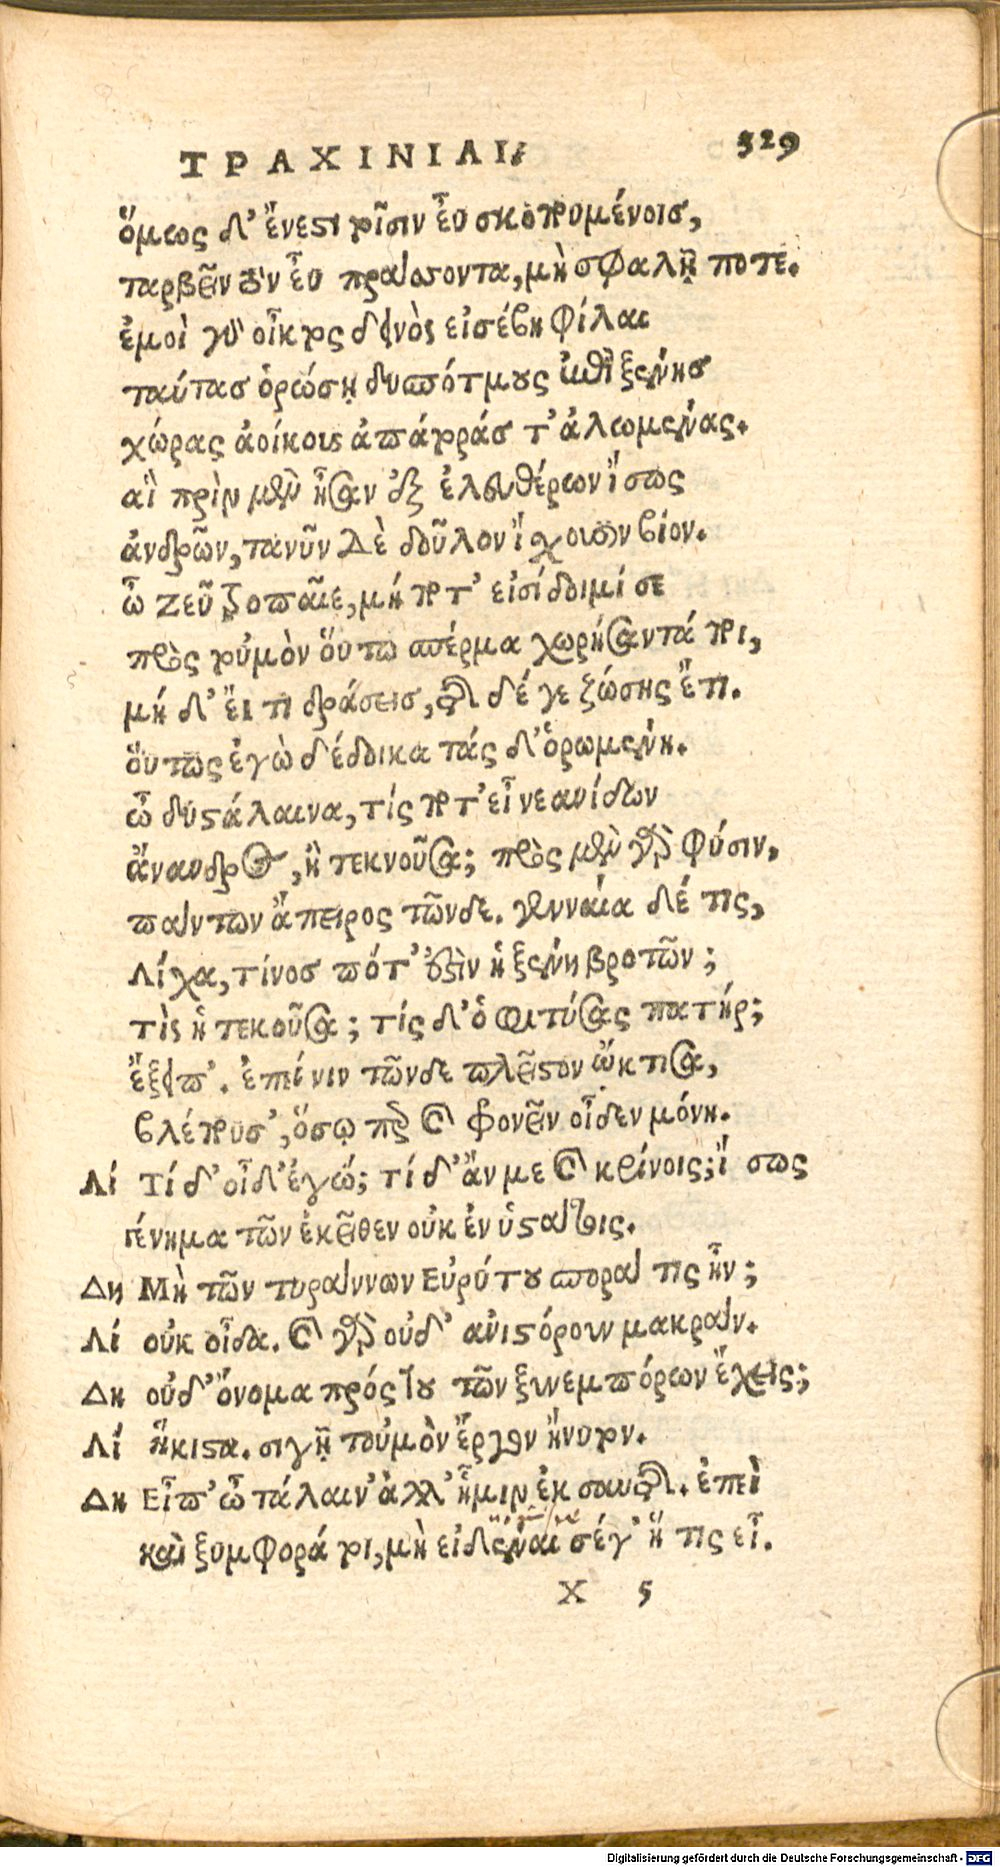 ΤΡΑΧΙΝΙΑΙ. 329
ὅμως δ' ἔνεστι τοῖσιν εὖ σκοπουμένοις,
ταρβεῖν τὸν εὖ πράσσοντα, μὴ σφαλῇ ποτε.
ἐμοὶ γὰρ οἶκτος δεινὸς εἰσέβη φίλαι
ταύτας ὁρώσῃ δυσπότμους ἐπὶ ξένης
χώρας ἀοίκους ἀπάτοράς τ' ἀλωμένας.
αἳ πρὶν μὲν ἦσαν ἐξ ἐλευθέρων ἴσως
ἀνδρῶν, τανῦν δὲ δοῦλον ἴχουσιν βίον.
ὦ Ζεῦ τροπαῖε, μή ποτ' εἰσίδοιμί σε
πρὸς τοὐμὸν οὕτω σπέρμα χωρήσαντά ποι,
μήδ' ἔι τι δράσεις, τῆσδέ γε ζώσης ἔτι.
οὕτως ἐγὼ δέδοικα τάς δ' ὁρωμένη.
ὦ δυστάλαινα, τίς ποτ' εἶ νεανίδων
ἄνανδρος, ἢ τεκνοῦσα; πρὸς μὲν γὰρ φύσιν,
πάντων ἄπειρος τῶνδε. γενναία δέ τις,
Λίχα, τίνος πότ' ἐστὶν ἡ ξένη βροτῶν;
τὶς ἡ τεκοῦσα; τίς δ' ὁ φιτύσας πατήρ;
ἔξειπ'. ἐπεί νιν τῶνδε πλεῖστον ᾤκτισα,
βλέπουσ', ὅσῳ περ καὶ φρονεῖν οἶδεν μόνη.
Λί Τί δ' οἶδ' ἐγώ; τί δ' ἄν με καὶ κρίνοις; ἴσως
γένημα τῶν ἐκεῖθεν οὐκ ἐν ὑστάτοις.
Δη Μὴ τῶν τυράννων Εὐρύτου σπορά τις ἦν;
Λί οὐκ οἶδα. καὶ γὰρ οὐδ' ἀνιστόρουν μακράν.
Δη οὐδ' ὄνομα πρός του τῶν ξυνεμπόρων ἔχεις;
Λί ἥκιστα. σιγῇ τοὐμὸν ἔργον ἤνυτον.
Δη Εἶπ' ὦ τάλαιν' ἀλλ' ἧμιν ἐκ σαυτῆς. ἐπεὶ
καὶ ξυμφορά τοι, μὴ εἰδέναι σέγ' ἥ τις εἶ.
Χ 5
Digitalisierung gefördert durch die Deutsche Forschungsgemeinschaft - DFG